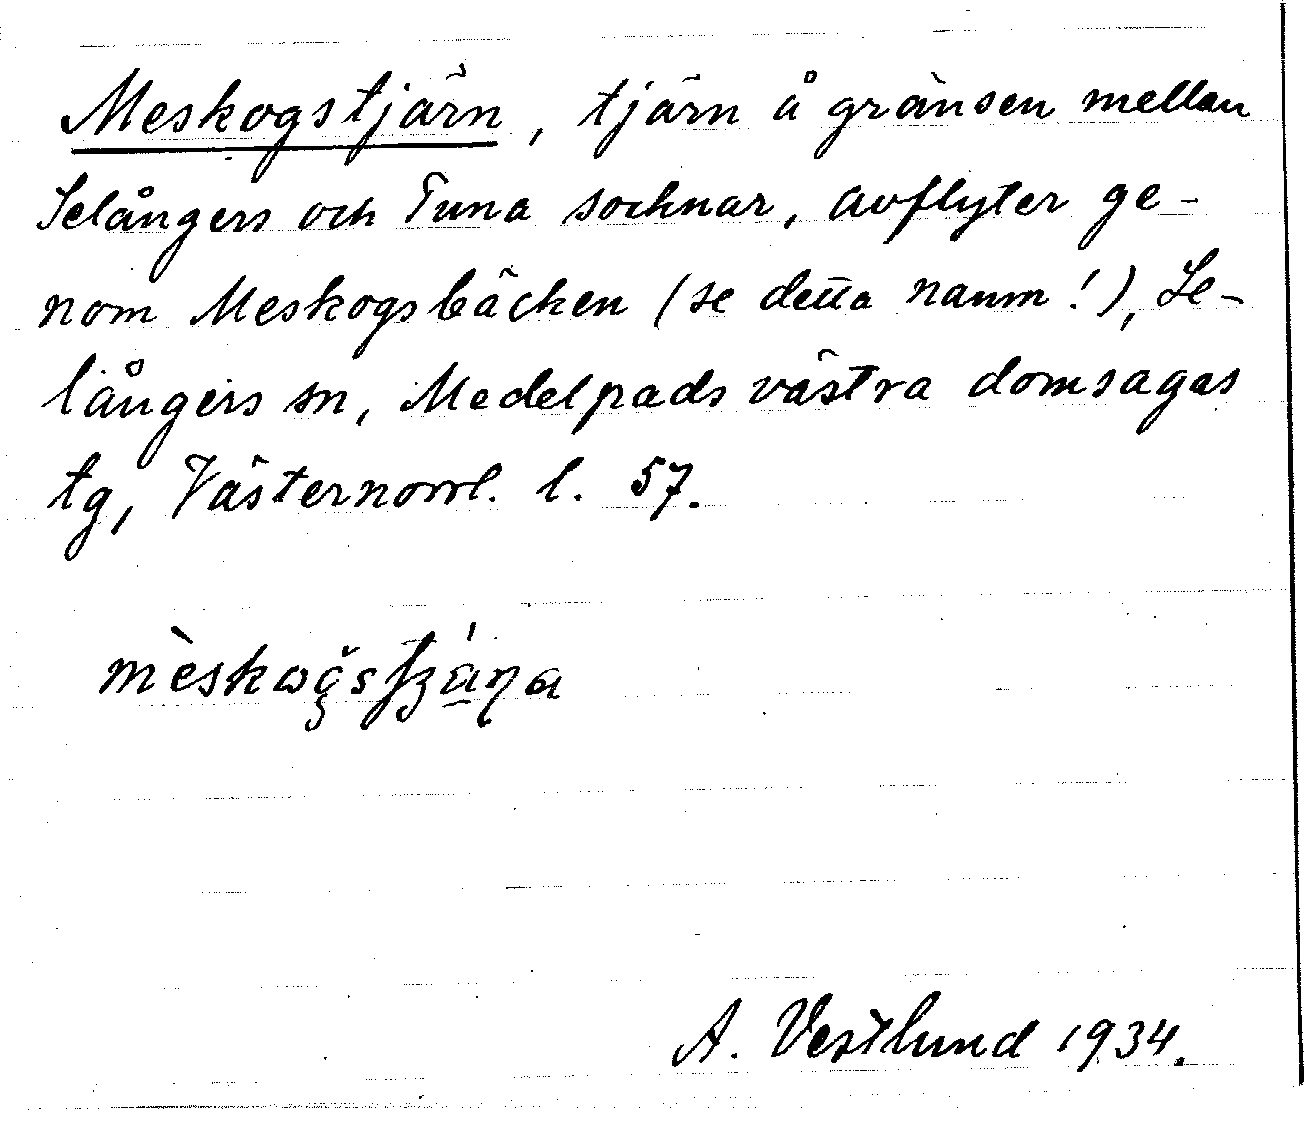 Meskogstjärn, tjärn å gränsen mellan
Selångers och Tuna socknar, avflyter ge-
nom Meskogsbäcken (se detta namn!), Se-
långers sn, Medelpads västra domsagas
tg, Västernorrl. l. 57.
A. Vestlund 1934.